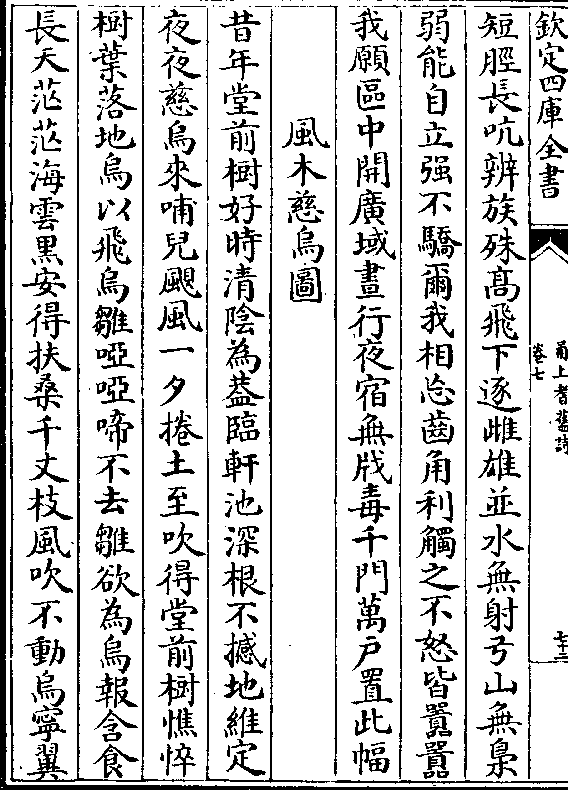 欽定四庫全書
甬上耆舊詩
卷七
七十二
短脛長吭辨族殊髙飛下逐雌雄並水無射弓山無梟
弱能自立强不驕爾我相忘齒角利觸之不怒皆嚚嚚
我願區中開廣域晝行夜宿無戕毒千門萬户置此幅
風木慈烏圖
昔年堂前樹好時清陰為葢臨軒池深根不撼地維定
夜夜慈烏來哺兒颶風一夕捲土至吹得堂前樹憔悴
樹葉落地烏以飛烏雛啞啞啼不去雛欲為烏報含食
長天茫茫海雲黒安得扶桑千丈枝風吹不動烏寧翼